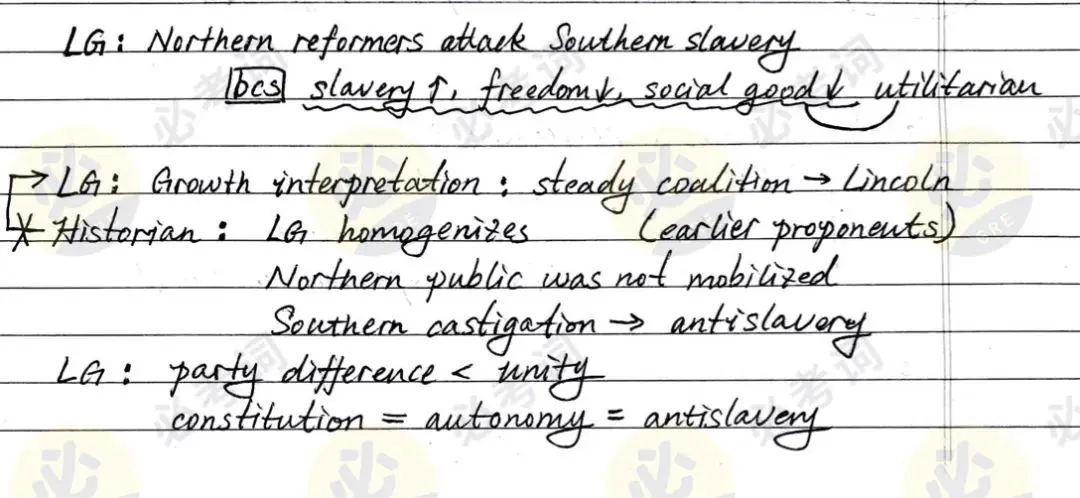 LG: Northern reformers attack Southern slavery
bcs slavery ↑, freedom↓, social good↓ utilitarian
→ LG: Growth interpretation: steady coalition → Lincoln
* Historian: LG homogenizes (earlier proponents)
Northern public was not mobilized
Southern castigation → antislavery
LG: party difference < unity
constitution = autonomy = antislavery
必考词
必
GRE